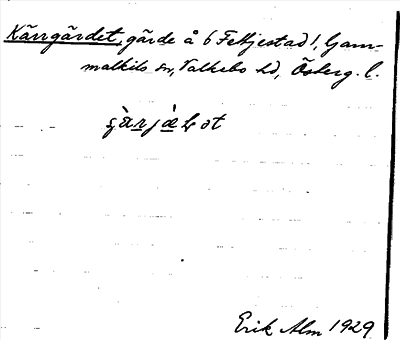 Kärrgärdet, gärde å 6 Fettjestad 1, Gam-
malkils sn, Valkebo hd, Österg. l.
Erik Alm 1929